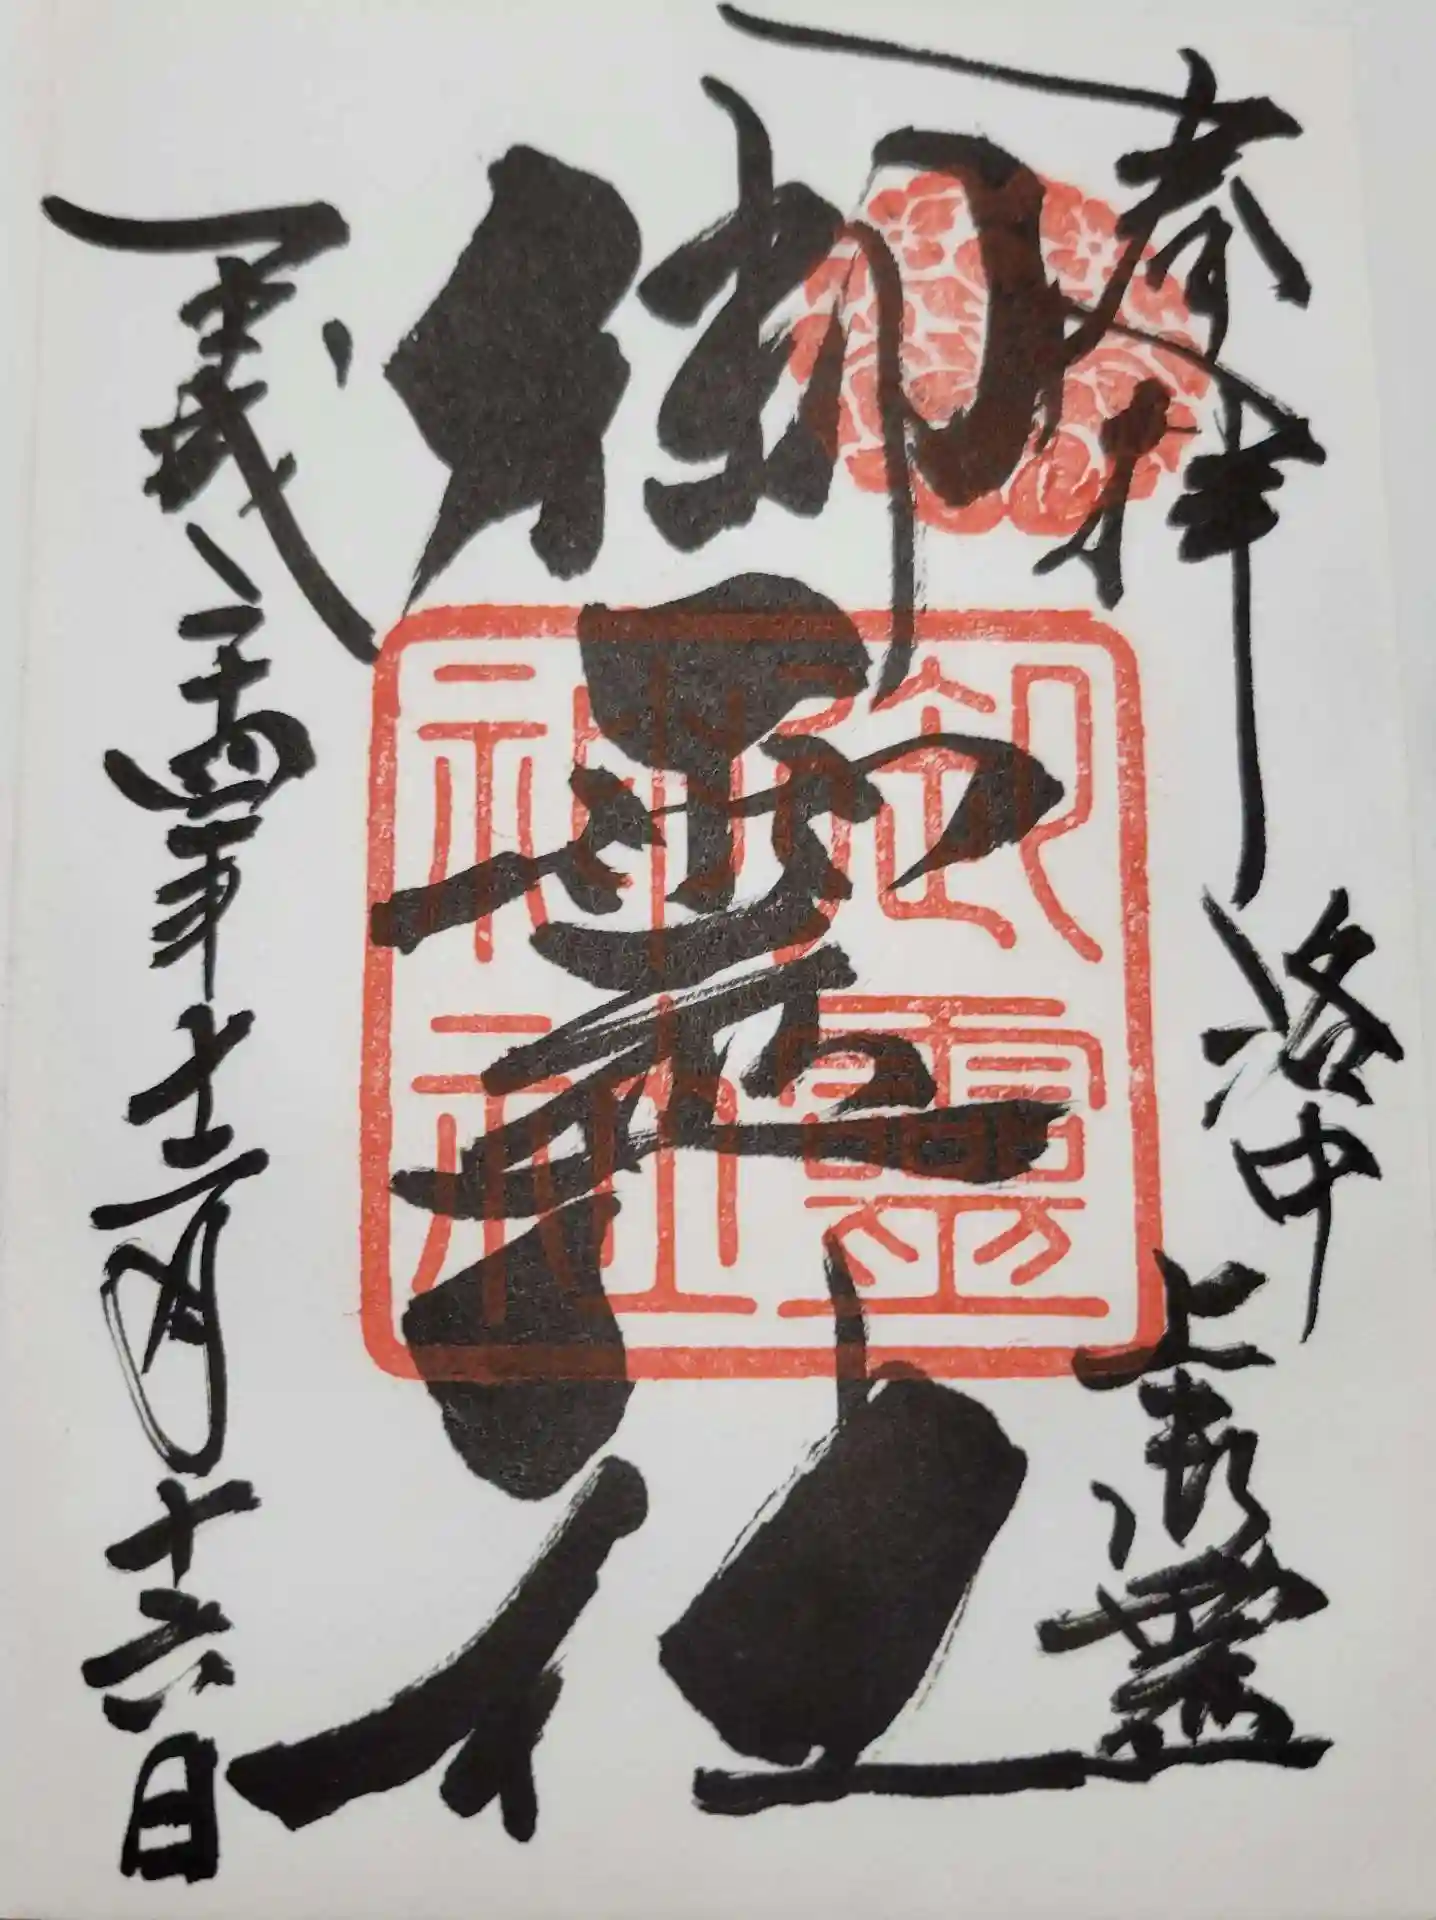 奉拝 洛中 上御霊
御霊社
御靈
神社
平成二十四年十二月十六日